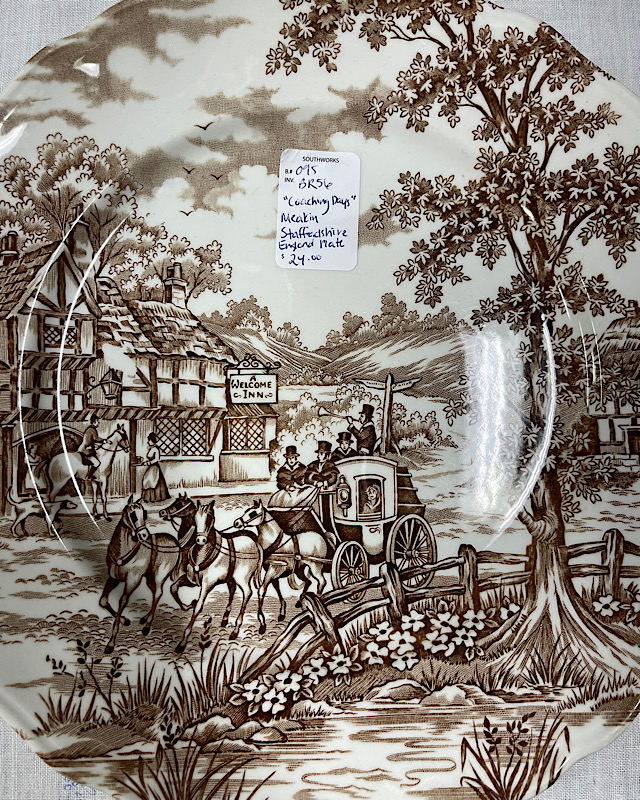 SOUTHWORKS
B.# 095
INV. BR56
"Coaching Days"
Meakin
Staffordshire
England Plate
$ 24.00
A
WELCOME
INN